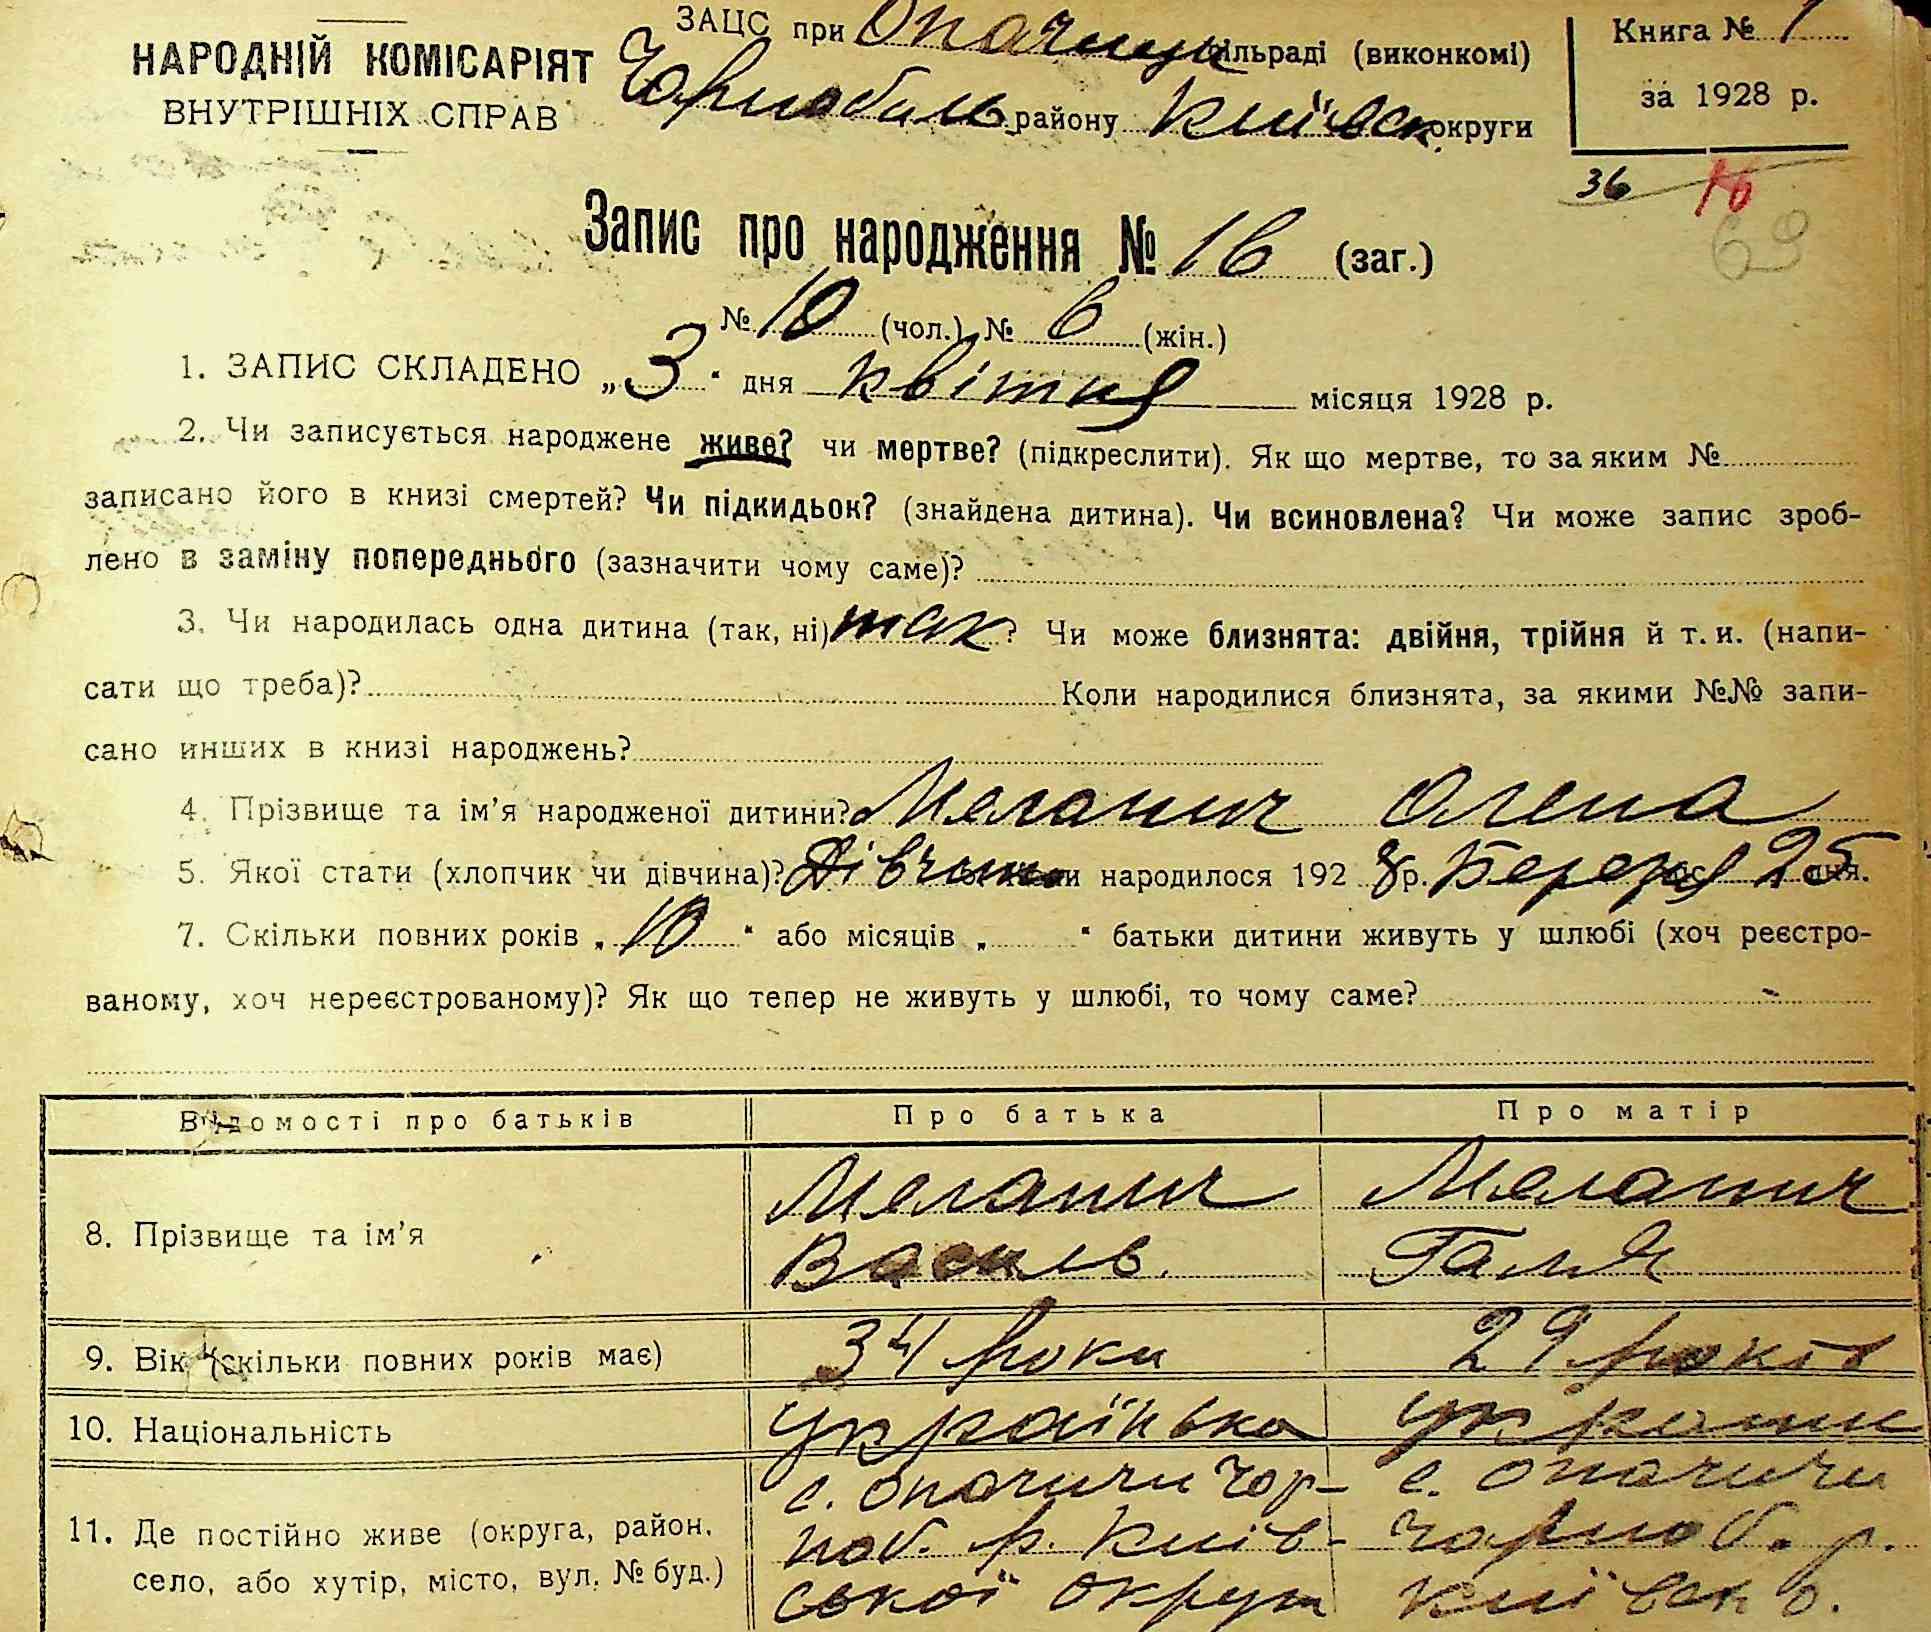 НАРОДНІЙ КОМІСАРІЯТ
ВНУТРІШНІХ СПРАВ
ЗАЦС при Опачиц. сільраді (виконкомі)
Чорнобиль району Київськ. округи
Книга № 1
за 1928 р.
36 16
69
Запис про народження № 16 (заг.)
№ 10 (чол.) № 6 (жін.)
1. ЗАПИС СКЛАДЕНО „3“ дня квітня місяця 1928 р.
2. Чи записується народжене живе? чи мертве? (підкреслити). Як що мертве, то за яким №
записано його в книзі смертей? Чи підкидьок? (знайдена дитина). Чи всиновлена? Чи може запис зроб-
лено в заміну попереднього (зазначити чому саме)?
3. Чи народилась одна дитина (так, ні) так? Чи може близнята: двійня, трійня й т. и. (напи-
сати що треба)? Коли народилися близнята, за якими №№ запи-
сано инших в книзі народжень?
4. Прізвище та ім'я народженої дитини? Меланич Олена
5. Якої стати (хлопчик чи дівчина)? Дівчина народилося 1928 р. Березня 25 дня.
7. Скільки повних років „10“ або місяців „ “ батьки дитини живуть у шлюбі (хоч реєстро-
ваному, хоч нереєстрованому)? Як що тепер не живуть у шлюбі, то чому саме? -
Відомості про батьків Про батька Про матір
8. Прізвище та ім'я
Меланич Меланич
Василь. Галя
9. Вік (скільки повних років має) 34 роки 29 років
10. Національність українька украин
11. Де постійно живе (округа, район, село, або хутір, місто, вул. № буд.)
с. Опачичи Чор- с. Опачичи
ноб. р. Київ- Чорноб. р.
ської округи Київськ о.